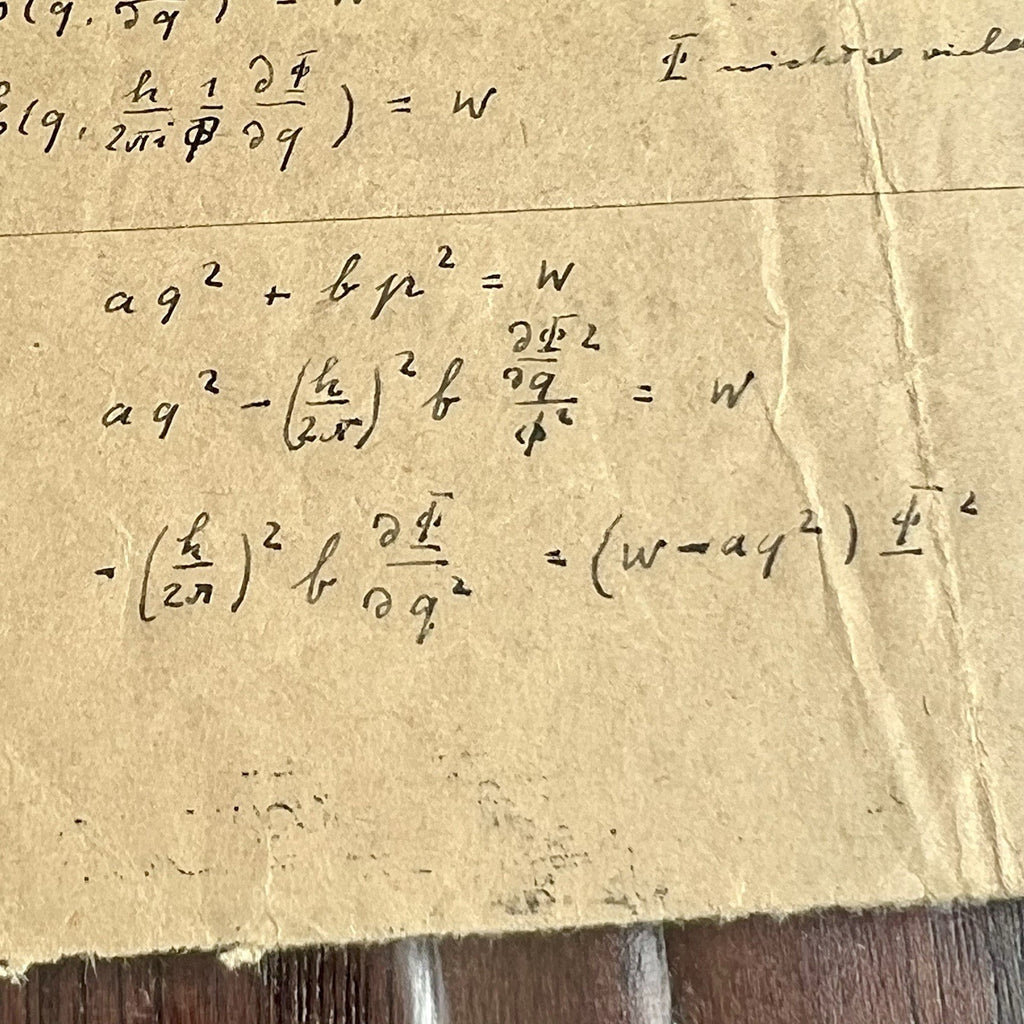 (q, ∂q) = W
(q, h/2πi 1/Φ ∂Φ/∂q) = W
Φ nicht
aq² + bp² = W
aq² - (h/2π)² b (∂Φ/∂q)²/Φ² = W
- (h/2π)² b ∂Φ/∂q² = (W - aq²) Φ²